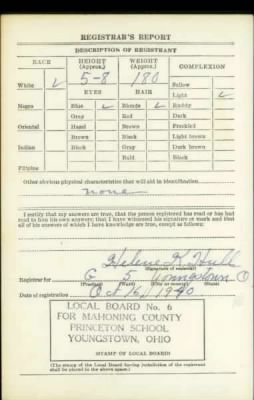 REGISTRAR'S REPORT
DESCRIPTION OF REGISTRANT
RACE HEIGHT (Approx.) WEIGHT (Approx.) COMPLEXION
5-8 180
White ✓ Sallow
EYES HAIR Light ✓
Negro Blue ✓ Blonde ✓ Ruddy
Gray Red Dark
Oriental Hazel Brown Freckled
Brown Black Light brown
Indian Black Gray Dark brown
Bald Black
Filipino
Other obvious physical characteristics that will aid in identification
none
I certify that my answers are true; that the person registered has read or has had
read to him his own answers; that I have witnessed his signature or mark and that
all of his answers of which I have knowledge are true, except as follows:
Helene K. Hull
(Signature of registrar)
Registrar for G 5 Youngstown O
(Precinct) (Ward) (City or county) (State)
Date of registration Oct 16, 1940
LOCAL BOARD No. 6
FOR MAHONING COUNTY
PRINCETON SCHOOL
YOUNGSTOWN, OHIO
(STAMP OF LOCAL BOARD)
(The stamp of the Local Board having jurisdiction of the registrant
shall be placed in the above space.)